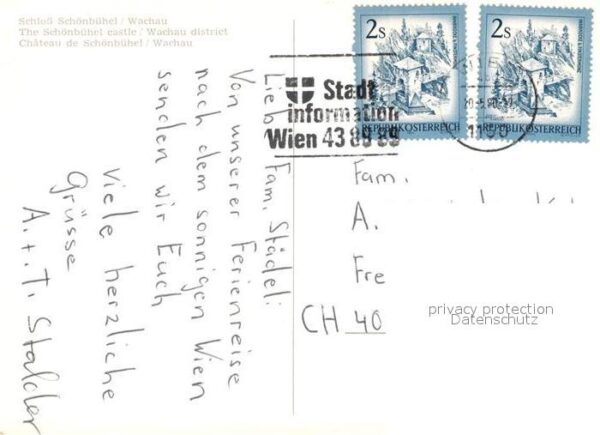 Schloß Schönbühel / Wachau
The Schönbühel castle / Wachau district
Château de Schönbühel / Wachau
2s
2s
REPUBLIK ÖSTERREICH
REPUBLIK ÖSTERREICH
Stadt
information
Wien 43 89 89
Liebe Fam. Städeli
Von unserer Ferienreise
nach dem sonnigen Wien
senden wir Euch
viele herzliche
Grüsse
A. + T. Stalder
Fam.
A.
Fre
CH 40
privacy protection
Datenschutz